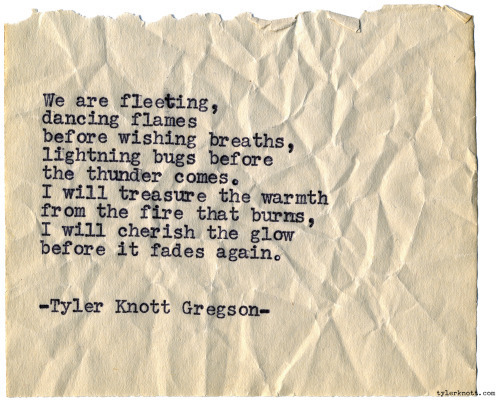 We are fleeting,
dancing flames
before wishing breaths,
lightning bugs before
the thunder comes.
I will treasure the warmth
from the fire that burns,
I will cherish the glow
before it fades again.
-Tyler Knott Gregson-
tylerknott.com